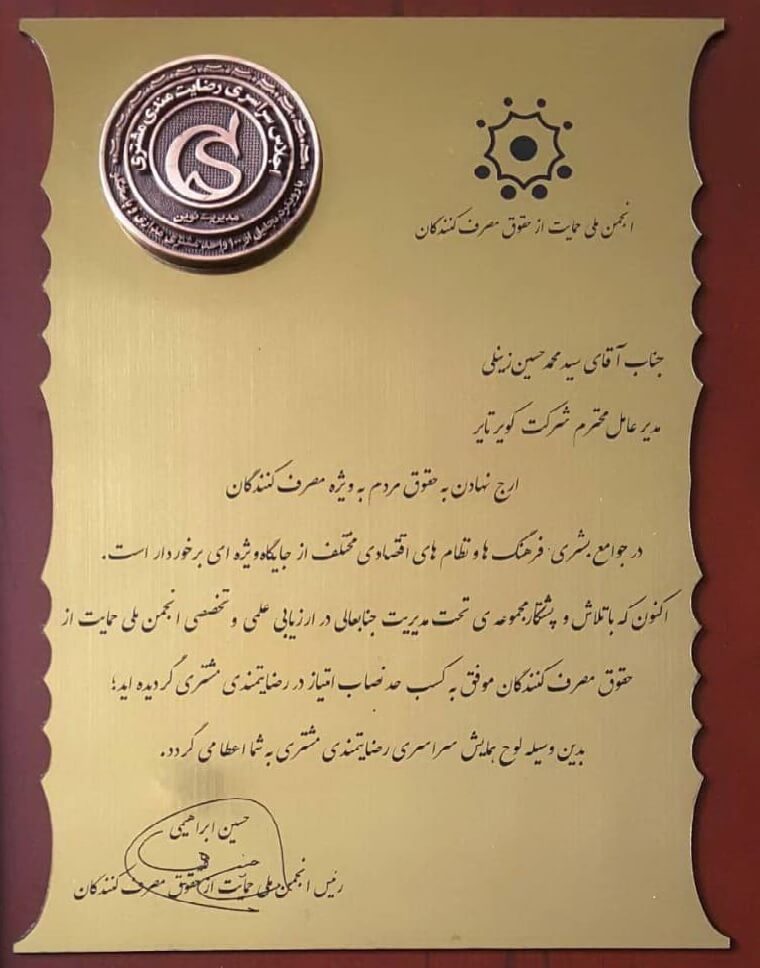 اجلاس سراسری رضایت مندی مشتری
مدیریت نوین
انجمن ملی حمایت از حقوق مصرف کنندگان
جناب آقای سید محمد حسین زینلی
مدیر عامل محترم شرکت کویر تایر
ارج نهادن به حقوق مردم به ویژه مصرف کنندگان
در جوامع بشری، فرهنگ ها و نظام های اقتصادی مختلف از جایگاه ویژه ای برخوردار است.
اکنون که با تلاش و پشتکار مجموعه ی تحت مدیریت جنابعالی در ارزیابی علمی و تخصصی انجمن ملی حمایت از
حقوق مصرف کنندگان موفق به کسب حد نصاب امتیاز در رضایتمندی مشتری گردیده اید؛
بدین وسیله لوح همایش سراسری رضایتمندی مشتری به شما اعطا می گردد.
حسین ابراهیمی
رئیس انجمن ملی حمایت از حقوق مصرف کنندگان